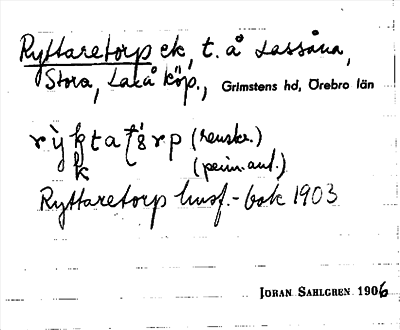 Ryttaretorp ek, t. å Lassåna,
Stora, Laxå köp., Grimstens hd, Örebro län
(renskr.)
(prim. ant.)
Ryttaretorp husf.-bok 1903
JORAN SAHLGREN 1906